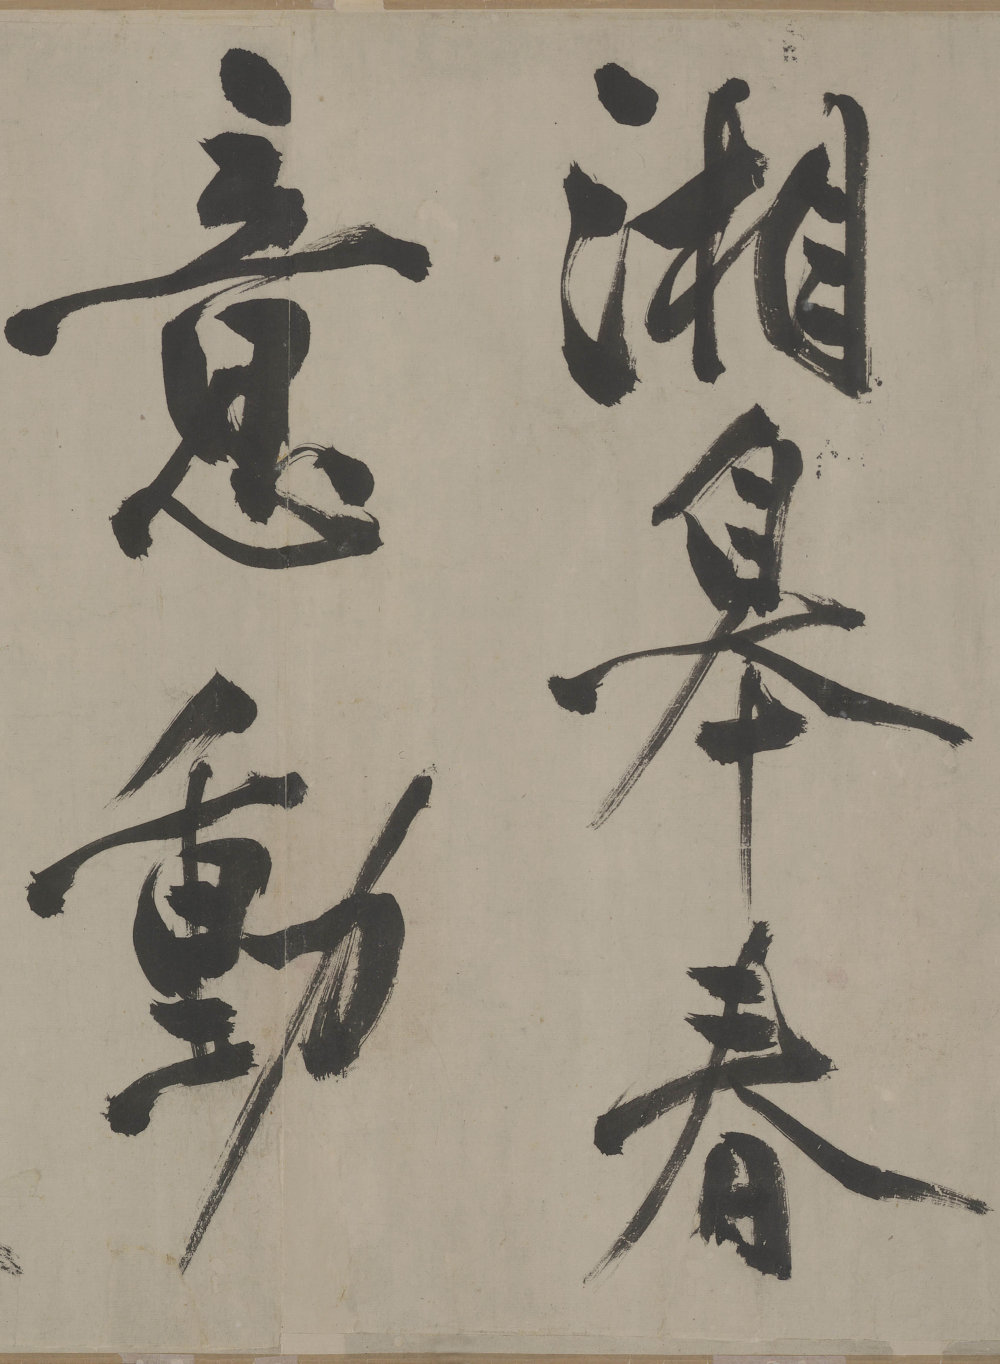 湘皐春
意動